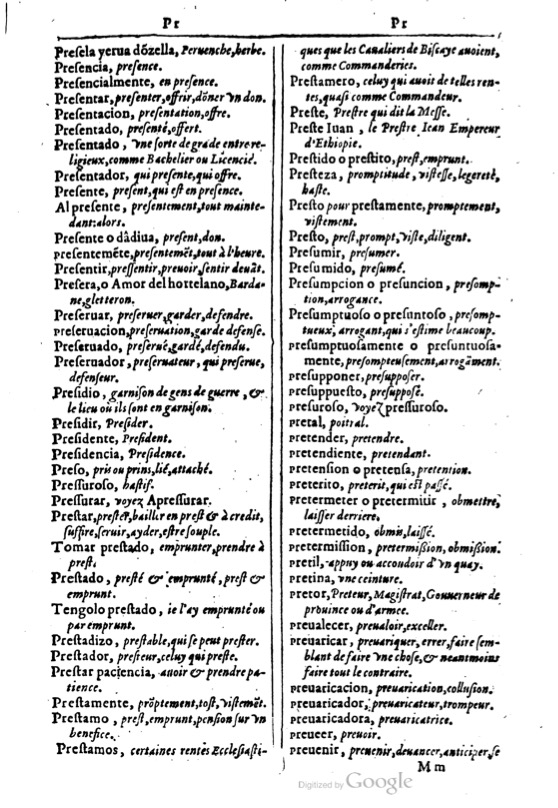 Pr
Presela yerua dõzella, Peruenche, herbe.
Presencia, presence.
Presencialmente, en presence.
Presentar, presenter, offrir, dõner vn don.
Presentacion, presentation, offre.
Presentado, presenté, offert.
Presentado, vne sorte de grade entre re-
ligieux, comme Bachelier ou Licencié.
Presentador, qui presente, qui offre.
Presente, present, qui est en presence.
Al presente, presentement, tout mainte-
dant: alors.
Presente o dàdiua, present, don.
presentemẽte, presentemẽt, tout à l'heure.
Presentir, pressentir, preuoir, sentir deuãt.
Presera, o Amor del hortelano, Barda-
ne, gletteron.
Preseruar, preseruer, garder, defendre.
preseruacion, preseruation, garde defense.
Preseruado, preserué, gardé, defendu.
Preseruador, preseruateur, qui preserue,
defenseur.
Presidio, garnison de gens de guerre, &
le lieu où ils sont en garnison.
Presidir, Presider.
Presidente, President.
Presidencia, Presidence.
Preso, pris ou prins, lié, attaché.
Pressuroso, hastif.
Pressurar, voyez Apressurar.
Prestar, prester, bailler en prest & à credit,
suffire, seruir, ayder, estre souple.
Tomar prestado, emprunter, prendre à
prest.
Prestado, presté & emprunté, prest &
emprunt.
Tengolo prestado, ie l'ay emprunté ou
par emprunt.
Prestadizo, prestable, qui se peut prester.
Prestador, presteur, celuy qui preste.
Prestar paciencia, auoir & prendre pa-
tience.
Prestamente, prõptement, tost, vistemẽt.
Prestamo, prest, emprunt, pension sur vn
benefice.
Prestamos, certaines rentes Ecclesiasti-
Pr
ques que les Caualiers de Biscaye auoient,
comme Commanderies.
Prestamero, celuy qui auoit de telles ren-
tes, quasi comme Commandeur.
Preste, Prestre qui dit la Messe.
Preste Iuan, le Prestre Iean Empereur
d'Ethiopie.
Prestido o prestito, prest, emprunt.
Presteza, promptitude, vistesse, legereté,
haste.
Presto pour prestamente, promptement,
vistement.
Presto, prest, prompt, viste, diligent.
Presumir, presumer.
Presumido, presumé.
Presumpcion o presuncion, presomp-
tion, arrogance.
Presumptuoso o presuntoso, presomp-
tueux, arrogant, qui s'estime beaucoup.
presumptuosamente o presuntuosa-
mente, presompteusement, arrogãment.
presupponer, presupposer.
presuppuesto, presupposé.
presuroso, voyez pressuroso.
pretal, poitral.
pretender, pretendre.
pretendiente, pretendant.
pretension o pretensa, pretention.
preterito, preterit, qui est passé.
pretermeter o pretermitir, obmettre,
laisser derriere.
pretermetido, obmis, laissé.
pretermission, pretermißion, obmißion.
pretil, appuy ou accoudoir d'vn quay.
pretina, vne ceinture.
pretor, Preteur, Magistrat, Gouuerneur de
prouince ou d'armee.
preualecer, preualoir, exceller.
preuaricar, preuariquer, errer, faire sem-
blant de faire vne chose, & neantmoins
faire tout le contraire.
preuaricacion, preuarication, collusion.
preuaricador, preuaricateur, trompeur.
preuaricadora, preuaricatrice.
preueer, preuoir.
preuenir, preuenir, deuancer, anticiper, se
M m
Digitized by Google